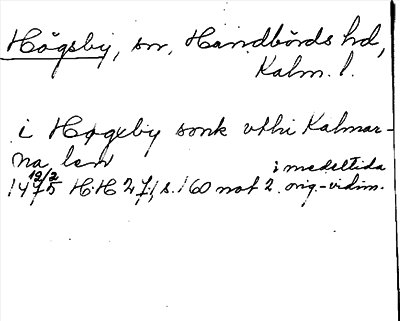 Högsby, sn, Handbörds hd,
Kalm. l.
i Hogxby sonk vthi Kalmar-
na len
1475 12/2 H.H 27, s. 160 not 2. i medeltida orig.-vidim.